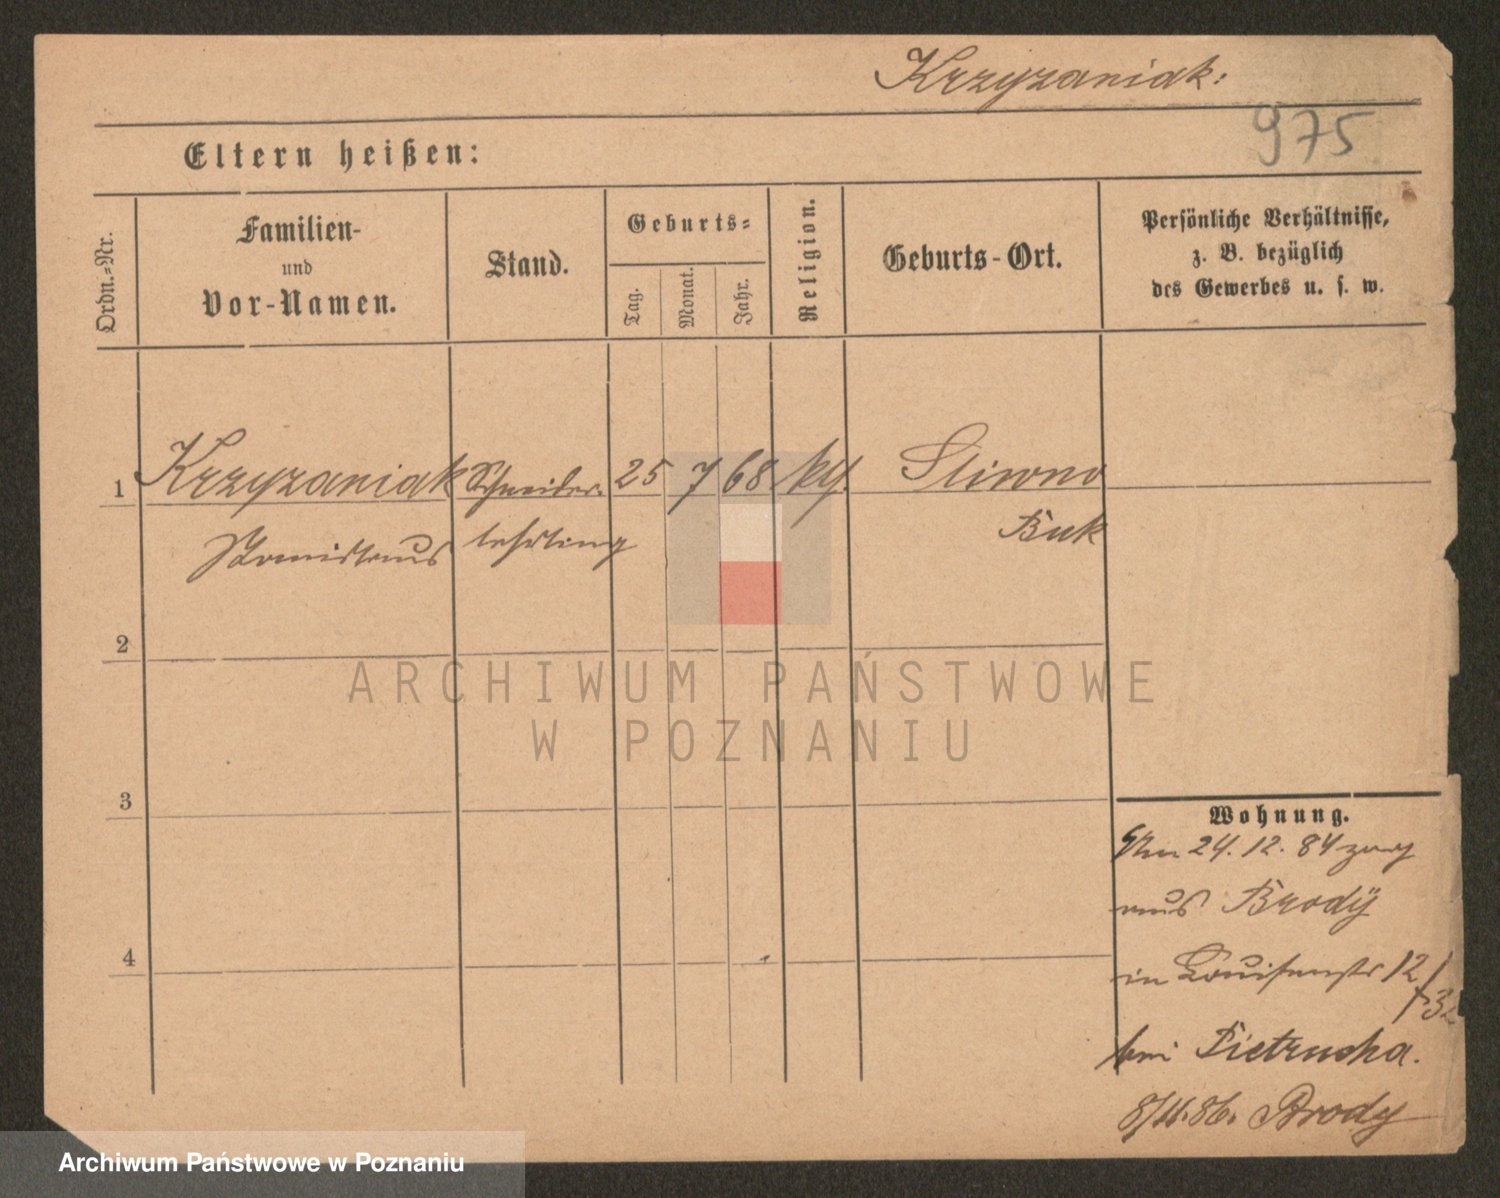 Krzyzaniak:
975
Eltern heißen:
Ordn.-Nr.
Familien-
und
Vor-Namen.
Stand.
Geburts-
Tag.
Monat.
Jahr.
Religion.
Geburts-Ort.
Persönliche Verhältnisse,
z. B. bezüglich
des Gewerbes u. s. w.
1 Krzyzaniak Schneider- 25 7 68 kth. Sliwno
Stanislaus lehrling Buk
2
3
4
ARCHIWUM PAŃSTWOWE
W POZNANIU
Wohnung.
Am 24. 12. 84 zog
aus Brody
in Louisenstr 12/
bei Pietrucha.
8/11.86. Brody
Archiwum Państwowe w Poznaniu